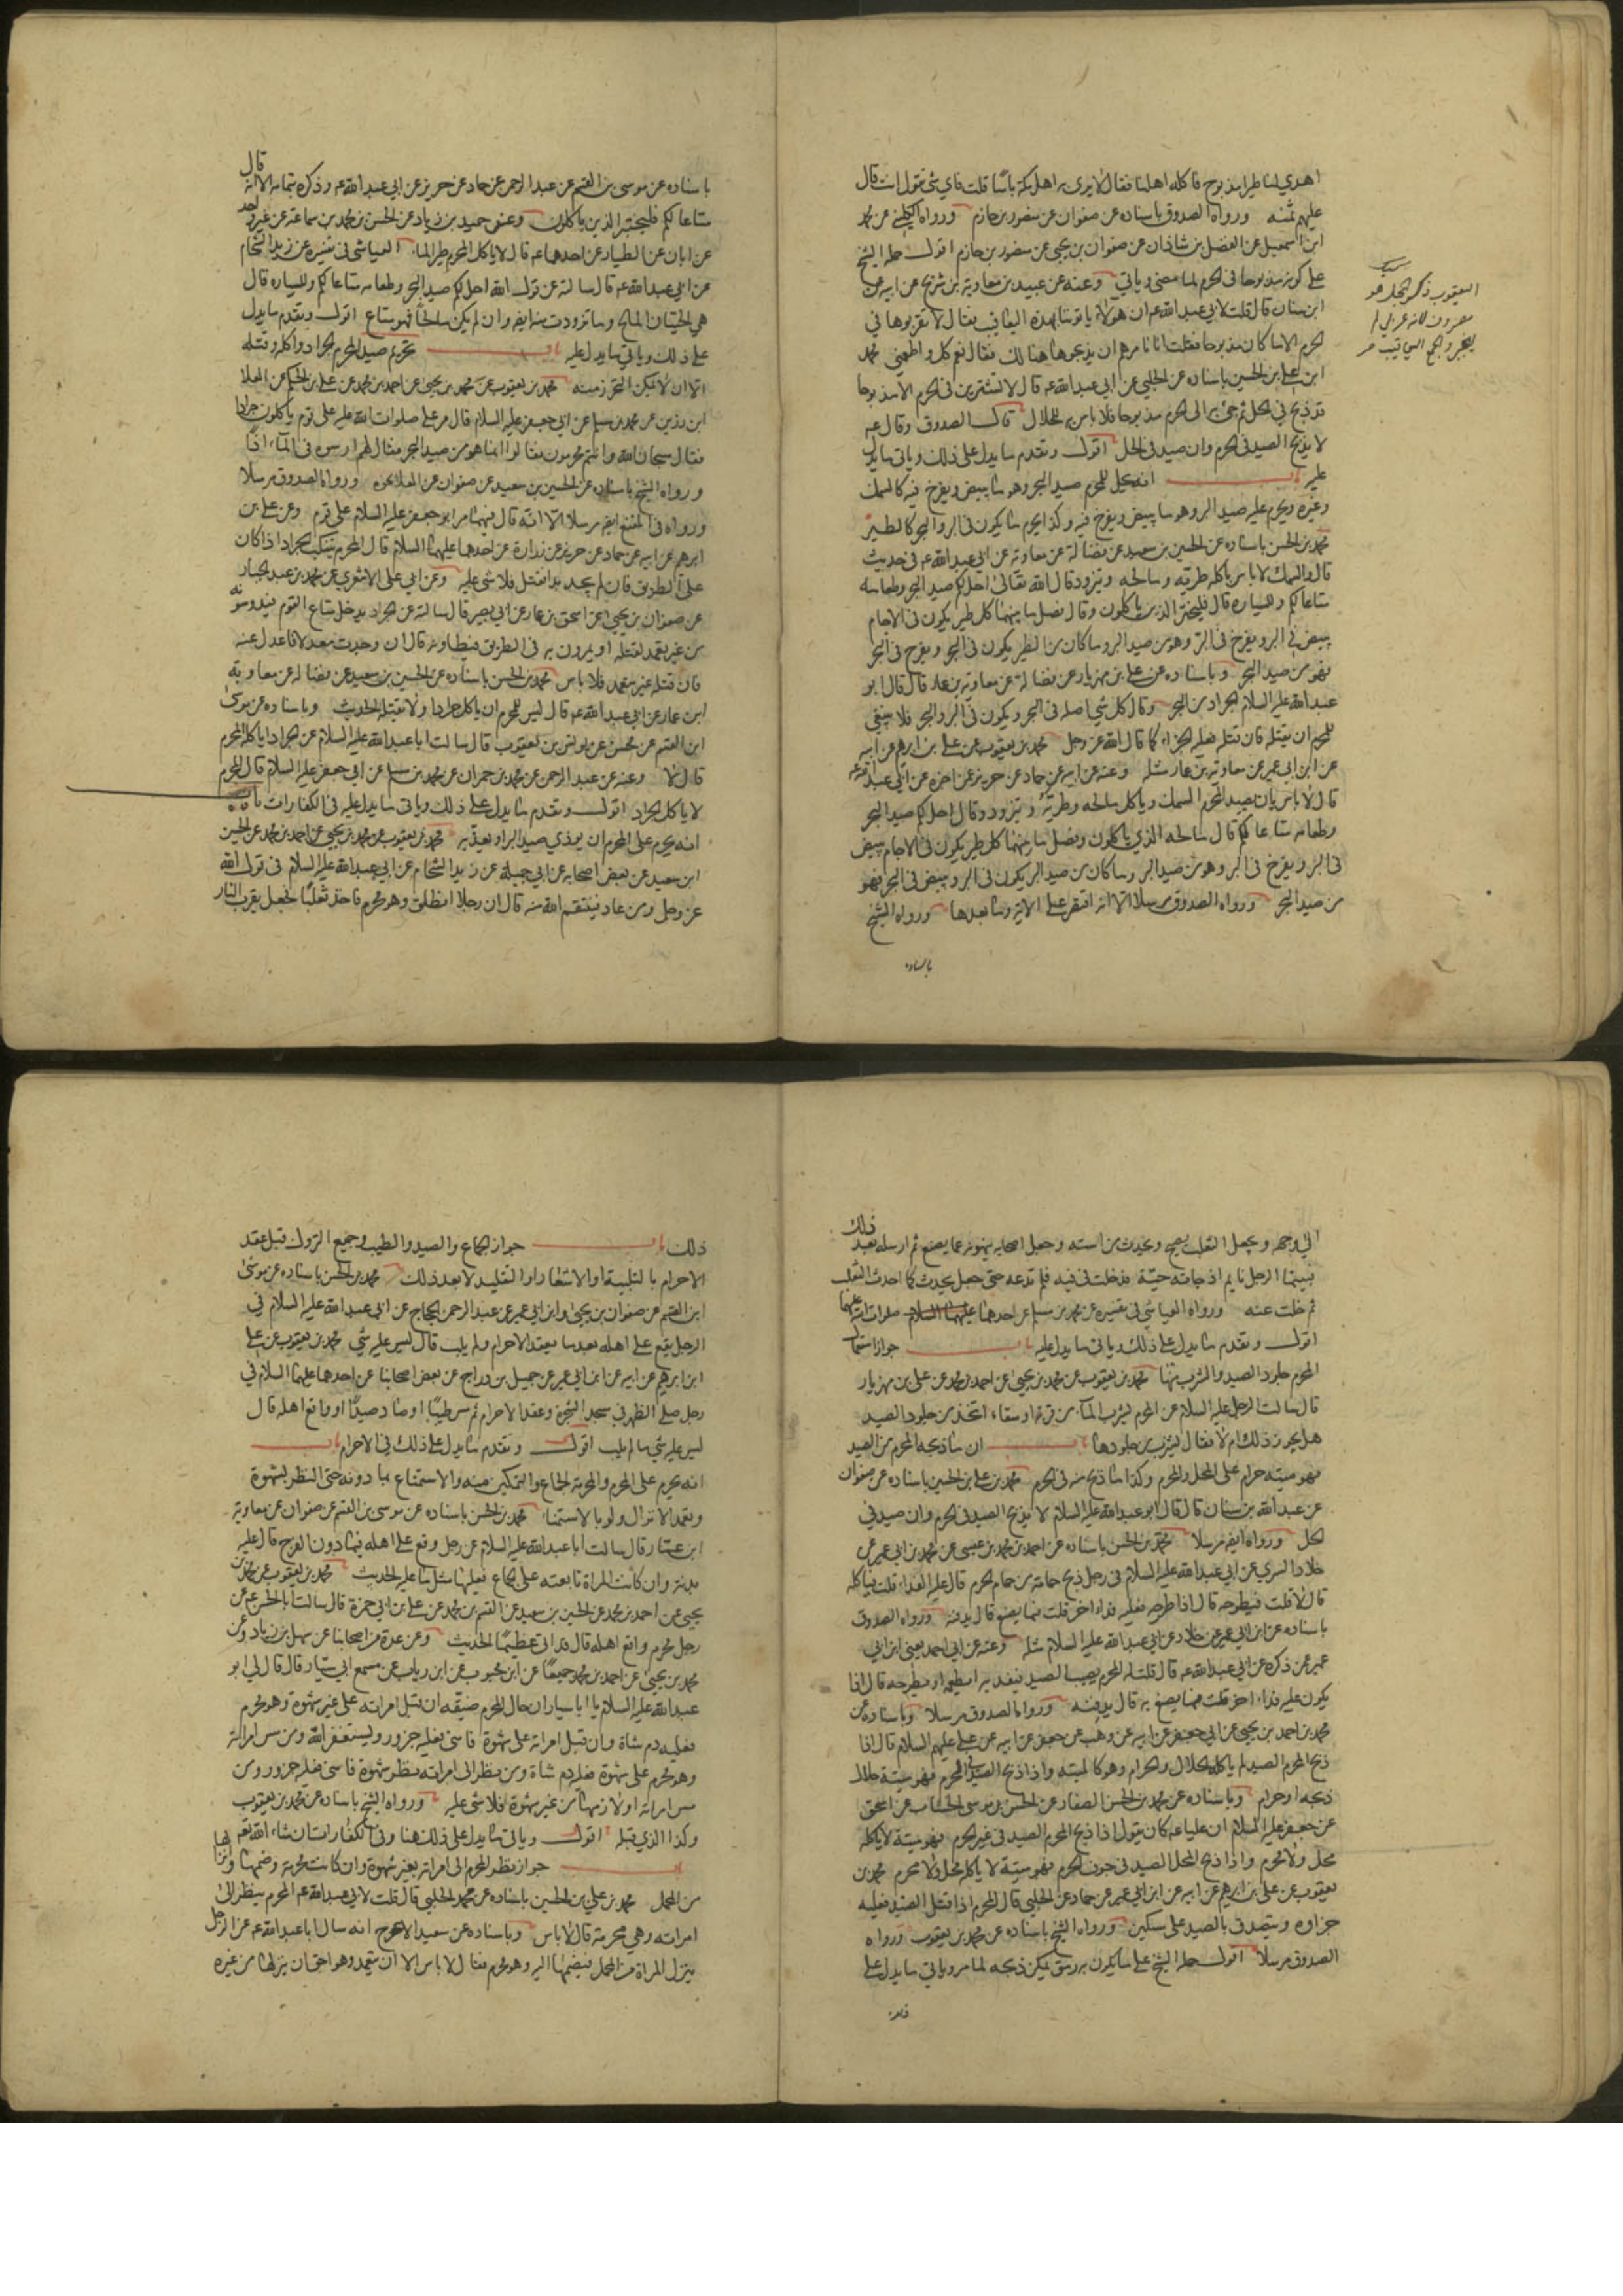 اهدي لنا طير مذبوح فاكله اهلنا فقال لا يرى به اهل مكة باسا قلت فاي شي تقول انت قال
عليهم ثمنه ورواه الصدوق باسناده عن صفوان عن منصور بن حازم ورواه الكليني عن محمد
ابن اسمعيل عن الفضل بن شاذان عن صفوان بن يحيى عن منصور بن حازم اقول حمله الشيخ
على كونه مذبوحا في الحرم لما مضى وياتي وعنه عن عبيد بن معاوية بن شريح عن ابيه عن
ابن سنان قال قلت لابي عبدالله عم ان هؤلاء ياتوننا بهذه اليعاقيب فقال لا تقربوها في
الحرم الا ما كان مذبوحا فقلت انا نامرهم ان يذبحوها هنا لك فقال نعم كل واطعمني محمد
ابن علي بن الحسين باسناده عن الحلبي عن ابي عبدالله عم قال لا تشترين في الحرم الا مذبوحا
قد ذبح في الحل ثم جئ به الى الحرم مذبوحا فلا باس به للحلال قال الصدوق وقال عم
لا يذبح الصيد في الحرم وان صيد في الحل اقول وتقدم ما يدل على ذلك وياتي ما يدل
عليه باب انه يحل للمحرم صيد البحر وهو ما يبيض ويفرخ فيه كالسمك
وغيره ويحرم عليه صيد البر وهو ما يبيض ويفرخ فيه وكذا يحرم ما يكون في البر والبحر كالطير
محمد بن الحسن باسناده عن الحسين بن سعيد عن فضالة عن معاوية عن ابي عبدالله عم في حديث
قال والسمك لا باس باكله طريه ومالحه وتزود قال الله تعالى احل لكم صيد البحر وطعامه
متاعا لكم وللسيارة قال فليختر الذين ياكلون وقال فصل ما بينهما كل طير يكون في الاجام
يبيض في البر ويفرخ في البر وهو من صيد البر وما كان من الطير يكون في البحر ويفرخ في البحر
فهو من صيد البحر وباسناده عن علي بن مهزيار عن فضالة عن معاوية بن عمار قال قال ابو
عبدالله عليه السلام الجراد من البحر وقال كل شي اصله في البحر ويكون في البر والبحر فلا ينبغي
للمحرم ان يقتله فان قتله فعليه الجزاء كما قال الله عز وجل محمد بن يعقوب عن علي بن ابرهيم عن ابيه
عن ابن ابي عمير عن معاوية بن عمار مثله وعنه عن ابيه عن حماد عن حريز عمن اخبره عن ابي عبدالله عم
قال لا باس بان يصيد المحرم السمك وياكل مالحه وطريه ويتزود وقال احل لكم صيد البحر
وطعامه متاعا لكم قال مالحه الذي ياكلون وفصل ما بينهما كل طير يكون في الاجام يبيض
في البر ويفرخ في البر وهو من صيد البر وما كان من صيد البر يكون في البر ويبيض في البحر فهو
من صيد البحر ورواه الصدوق مرسلا الا انه اقتصر على الاية وما بعدها ورواه الشيخ
باسناده
اليعقوب ذكر الحجل هو
مصروف لانه عربي لم
يغير والجمع اليعاقيب
قال
باسناده عن موسى بن القسم عن عبد الرحمن عن حماد عن حريز عن ابي عبدالله عم وذكره بتمامه الا انه
متاعا لكم فليختر الذين ياكلون وعن حميد بن زياد عن الحسن بن محمد بن سماعة عن غير واحد
عن ابان عن الطيار عن احدهما عم قال لا ياكل المحرم طير الماء العياشي في تفسيره عن زيد الشحام
عن ابي عبدالله عم قال سالته عن قول الله احل لكم صيد البحر وطعامه متاعا لكم وللسيارة قال
هي الحيتان المالح وما تزودت منه ايضا وان لم يكن مالحا فهو متاع اقول وتقدم ما يدل
على ذلك وياتي ما يدل عليه باب تحريم صيد المحرم الجراد واكله وقتله
الا ان لا يمكن التحرز منه محمد بن يعقوب عن محمد بن يحيى عن احمد بن محمد عن علي بن الحكم عن العلا
ابن رزين عن محمد بن مسلم عن ابي جعفر عليه السلام قال مر علي صلوات الله عليه على قوم ياكلون جرادا
فقال سبحان الله وانتم محرمون فقالوا انما هو من صيد البحر فقال لهم ارمسوه في الماء اذا
ورواه الشيخ باسناده عن الحسين بن سعيد عن صفوان عن العلا نحوه ورواه الصدوق مرسلا
ورواه في المقنع ايضا مرسلا الا انه قال فيهما مر ابو جعفر عليه السلام على قوم وعن علي بن
ابرهيم عن ابيه عن حماد عن حريز عن زرارة عن احدهما عليهما السلام قال المحرم يتنكب الجراد اذا كان
على الطريق فان لم يجد بدا فقتل فلا شي عليه وعن ابي علي الاشعري عن محمد بن عبد الجبار
عن صفوان بن يحيى عن اسحق بن عمار عن ابي بصير قال سالته عن الجراد يدخل متاع القوم فيدوسونه
من غير تعمد لقتله او يمرون به في الطريق فيطاونه قال ان وجدت معدلا فاعدل عنه
فان قتلته غير متعمد فلا باس محمد بن الحسن باسناده عن الحسين بن سعيد عن فضالة عن معاوية
ابن عمار عن ابي عبدالله عم قال ليس للمحرم ان ياكل جرادا ولا يقتله الحديث وباسناده عن موسى
ابن القسم عن محسن عن يونس بن يعقوب قال سالت ابا عبدالله عليه السلام عن الجراد اياكله المحرم
قال لا وعنه عن عبد الرحمن عن محمد بن حمران عن محمد بن مسلم عن ابي جعفر عليه السلام قال المحرم
لا ياكل الجراد اقول وتقدم ما يدل على ذلك وياتي ما يدل عليه في الكفارات باب
انه يحرم على المحرم ان يوذي صيد البر او يعذبه محمد بن يعقوب عن محمد بن يحيى عن احمد بن محمد عن الحسين
ابن سعيد عن بعض اصحابه عن ابي جميلة عن زيد الشحام عن ابي عبدالله عليه السلام في قول الله
عز وجل ومن عاد فينتقم الله منه قال ان رجلا انطلق وهو محرم فاخذ ثعلبا فجعل يقرب النار
الى وجهه وجعل الثعلب يصيح ويحدث من استه وجعل اصحابه ينهونه عما يصنع ثم ارسله بعد ذلك
فبينما الرجل نايم اذ جاءته حية فدخلت في فيه فلم تدعه حتى جعل يحدث كما احدث الثعلب
ثم خلت عنه ورواه العياشي في تفسيره عن محمد بن مسلم عن احدهما صلوات الله عليهما
اقول وتقدم ما يدل على ذلك وياتي ما يدل عليه باب جواز استعمال
المحرم جلود الصيد والشرب منها محمد بن يعقوب عن محمد بن يحيى عن احمد بن محمد عن علي بن مهزيار
قال سالت الرجل عليه السلام عن المحرم يشرب الماء من قربة او سقاء اتخذ من جلود الصيد
هل يجوز ذلك ام لا فقال يشرب من جلودها باب ان ما ذبحه المحرم من الصيد
فهو ميتة حرام على المحل والمحرم وكذا ما ذبح منه في الحرم محمد بن علي بن الحسين باسناده عن صفوان
عن عبدالله بن سنان قال قال ابو عبدالله عليه السلام لا يذبح الصيد في الحرم وان صيد في
الحل ورواه ايضا مرسلا محمد بن الحسن باسناده عن احمد بن محمد بن عيسى عن محمد بن ابي عمير عن
خلاد السري عن ابي عبدالله عليه السلام في رجل ذبح حمامة من حمام الحرم قال عليه الفداء قلت فياكله
قال لا قلت فيطرحه قال اذا طرحه فعليه فداء اخر قلت فما يصنع قال يدفنه ورواه الصدوق
باسناده عن ابن ابي عمير عن خلاد عن ابي عبدالله عليه السلام مثله وعنه عن ابي احمد يعني ابن ابي
عمير عمن ذكره عن ابي عبدالله عم قال قلت له المحرم يصيب الصيد فيفديه ايطعمه او يطرحه قال اذا
يكون عليه فداء اخر قلت فما يصنع به قال يدفنه ورواه الصدوق مرسلا وباسناده عن
محمد بن احمد بن يحيى عن ابي جعفر عن ابيه عن وهب عن جعفر عن ابيه عن علي عليهم السلام قال اذا
ذبح المحرم الصيد لم ياكله الحلال والحرام وهو كالميتة واذا ذبح الصيد في الحرم فهو ميتة حلال
ذبحه او حرام وباسناده عن محمد بن الحسن الصفار عن الحسن بن موسى الخشاب عن اسحق
عن جعفر عليه السلام ان عليا عم كان يقول اذا ذبح المحرم الصيد في غير الحرم فهو ميتة لا ياكله
محل ولا محرم واذا ذبح المحل الصيد في جوف الحرم فهو ميتة لا ياكله محل ولا محرم محمد بن
يعقوب عن علي بن ابرهيم عن ابيه عن ابن ابي عمير عن حماد عن الحلبي قال المحرم اذا قتل الصيد فعليه
جزاوه ويتصدق بالصيد على مسكين ورواه الشيخ باسناده عن محمد بن يعقوب ورواه
الصدوق مرسلا اقول حمله الشيخ على ما يكون به رمق يمكن ذبحه لما مر وياتي ما يدل على
ذلك باب جواز الجماع والصيد والطيب وجميع التروك قبل عقد
الاحرام بالتلبية او الاشعار او التقليد لا بعد ذلك محمد بن الحسن باسناده عن موسى
ابن القسم عن صفوان بن يحيى وابن ابي عمير عن عبد الرحمن بن الحجاج عن ابي عبدالله عليه السلام في
الرجل يقع على اهله بعد ما يعقد الاحرام ولم يلب قال ليس عليه شي محمد بن يعقوب عن علي
ابن ابرهيم عن ابيه عن ابن ابي عمير عن جميل بن دراج عن بعض اصحابنا عن احدهما عليهما السلام في
رجل صلى الظهر في مسجد الشجرة وعقد الاحرام ثم مس طيبا او صاد صيدا او واقع اهله قال
ليس عليه شي ما لم يلب اقول وتقدم ما يدل على ذلك في الاحرام باب
انه يحرم على المحرم والمحرمة الجماع والتمكين منه والاستمتاع بما دونه حتى النظر بشهوة
وتعمد الانزال ولو بالاستمناء محمد بن الحسن باسناده عن موسى بن القسم عن صفوان عن معاوية
ابن عمار قال سالت ابا عبدالله عليه السلام عن رجل وقع على اهله فيما دون الفرج قال عليه
بدنة وان كانت المراة تابعته على الجماع فعليها مثل ما عليه الحديث محمد بن يعقوب عن محمد بن
يحيى عن احمد بن محمد عن الحسين بن سعيد عن القسم بن محمد عن علي بن ابي حمزة قال سالت ابا الحسن عم عن
رجل محرم واقع اهله قال قد اتى عظيما الحديث وعن عدة من اصحابنا عن سهل بن زياد وعن
محمد بن يحيى عن احمد بن محمد جميعا عن ابن محبوب عن ابن رياب عن مسمع ابي سيار قال قال لي ابو
عبدالله عليه السلام يا ابا سيار ان حال المحرم ضيقة ان قبل امراته على غير شهوة وهو محرم
فعليه دم شاة وان قبل امراته على شهوة فامنى فعليه جزور ويستغفر الله ومن مس امراته
وهو محرم على شهوة فعليه دم شاة ومن نظر الى امراته نظر شهوة فامنى فعليه جزور ومن
مس امراته او لازمها من غير شهوة فلا شي عليه ورواه الشيخ باسناده عن محمد بن يعقوب
وكذا الذي قبله اقول وياتي ما يدل على ذلك هنا وفي الكفارات ان شاء الله تعالى
باب جواز نظر المحرم الى امراته بغير شهوة وان كانت محرمة وضمها وانزالها
من المحمل محمد بن علي بن الحسين باسناده عن محمد الحلبي قال قلت لابي عبدالله عم المحرم ينظر الى
امراته وهي محرمة قال لا باس وباسناده عن سعيد الاعرج انه سال ابا عبدالله عم عن الرجل
ينزل المراة من المحمل فيضمها اليه وهو محرم فقال لا باس الا ان يتعمد وهو احق ان ينزلها من غيره